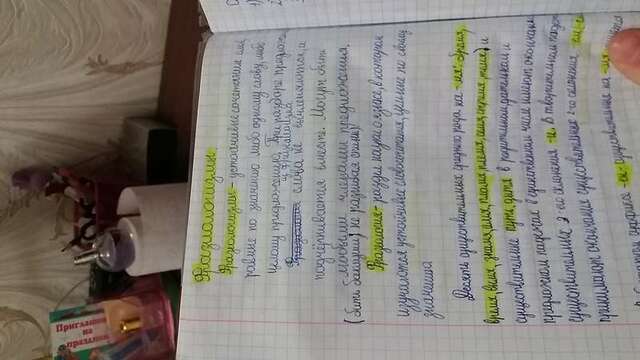 Приглашение
на
праздник
Фразеологизмы
Фразеологизмы - устойчивые сочетания слов,
равные по значению либо одному слову, либо
целому предложению. При разборе предложе
из фразеологизма
Фразеологи слова не вычленяются, а
подчёркивается вместе. Могут быть
любыми членами предложения,
(бить баклуши) не разгибая спины)
Фразеология - раздел науки о языке, в котором
изучаются устойчивые словосочетания, цельные по своему
значению
Десять существительных среднего рода на -мя: бремя,
время, вымя, знамя, имя, пламя, племя, семя, стремя, темя и
существительные путь, дитя в родительном, дательном и
предложном падежах в единственном числе имеют окончания
существительных 3-его склонения -и. В творительном падеже
принимают окончания существительных 2-го склонения -ем
суффикс -ен- существительных на -мя